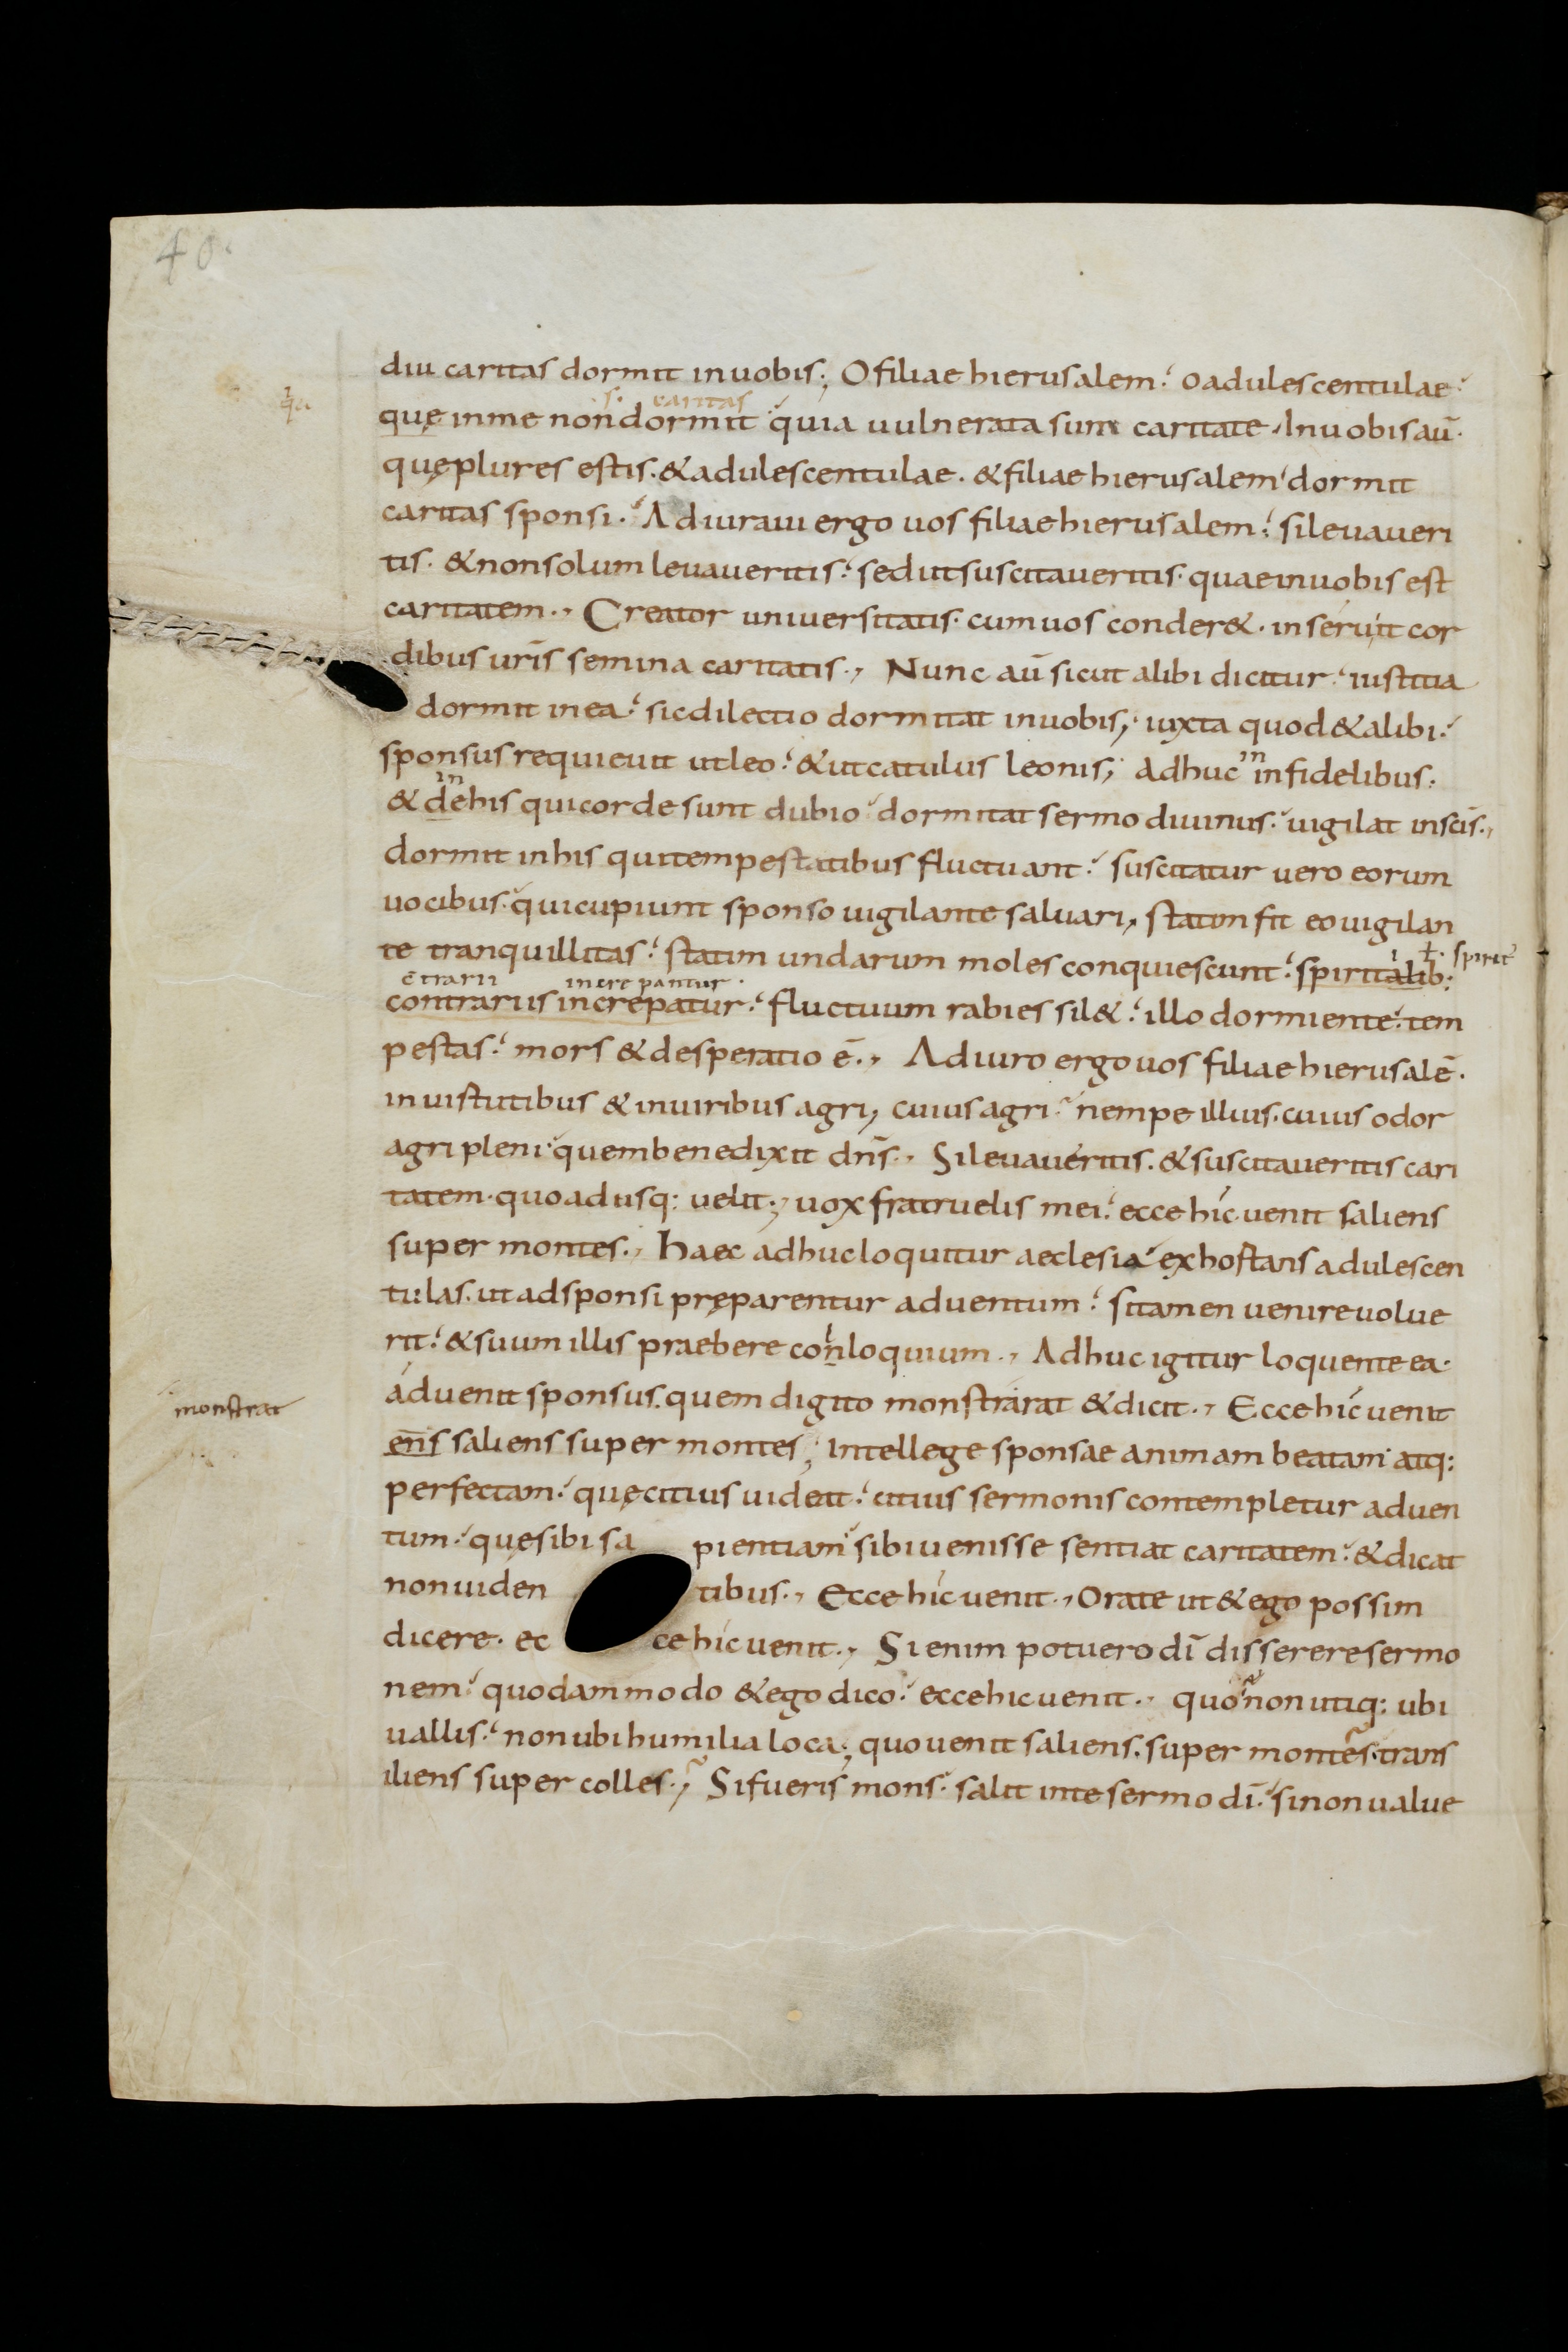 40.
diu caritas dormit in uobis; O filiae hierusalem. o adulescentulae
s. caritas
quę in me non dormit quia uulnerata sum caritate. In uobis aū.
quę plures estis. & adulescentulae. & filiae hierusalem dormit
caritas sponsi. Adiuraui ergo uos filiae hierusalem. si leuaueri
tis. & non solum leuaueritis. sed ut suscitaueritis. quae in uobis est
caritatem. Creator uniuersitatis. cum uos conder&. inseruit cor
dibus ur̄is semina caritatis. Nunc aū sicut alibi dicitur. iustitia
dormit in ea. sic dilectio dormitat in uobis; iuxta quod & alibi.
sponsus requieuit ut leo. & ut catulus leonis; Adhuc in infidelibus.
in
& de his qui corde sunt dubio dormitat sermo diuinus. uigilat in sc̄is.
dormit in his qui tempestatibus fluctuant. suscitatur uero eorum
uocibus. qui cupiunt sponso uigilante saluari, statim fit eo uigilan
te tranquillitas. statim undarum moles conquiescunt. spiritalib:
ł spirit
c̄trarii increpantur.
contrariis increpatur. fluctuum rabies sil&. illo dormiente. tem
pestas. mors & desperatio ē. Adiuro ergo uos filiae hierusalē.
in uistutibus & in uiribus agri, cuius agri. nempe illius. cuius odor
agri pleni quem benedixit dn̄s. Si leuaueritis. & suscitaueritis cari
tatem. quoadusq: uelit; uox fratruelis mei. ecce hic uenit saliens
super montes. haec adhuc loquitur aeclesia exhoftans adulescen
tulas. ut ad sponsi pręparentur aduentum. si tamen uenire uolue
rit. & suum illis praebere conloquium. Adhuc igitur loquente ea.
aduenit sponsus. quem digito monstrarat & dicit. Ecce hic uenit
monstrat
en̄s saliens super montes; intellege sponsae animam beatam atq:
perfectam. quę citius uideat. citius sermonis contempletur aduen
tum. quę sibi sa pientiam sibi uenisse sentiat caritatem. & dicat
non uiden tibus. Ecce hic uenit. Orate ut & ego possim
dicere. ec ce hic uenit. Si enim potuero dī disserere sermo
nem. quodammodo & ego dico. ecce hic uenit. quo non utiq: ubi
uallis. non ubi humilia loca; quo uenit saliens. super montes. trans
iliens super colles. Si fueris mons. salit in te sermo dī. si non ualue